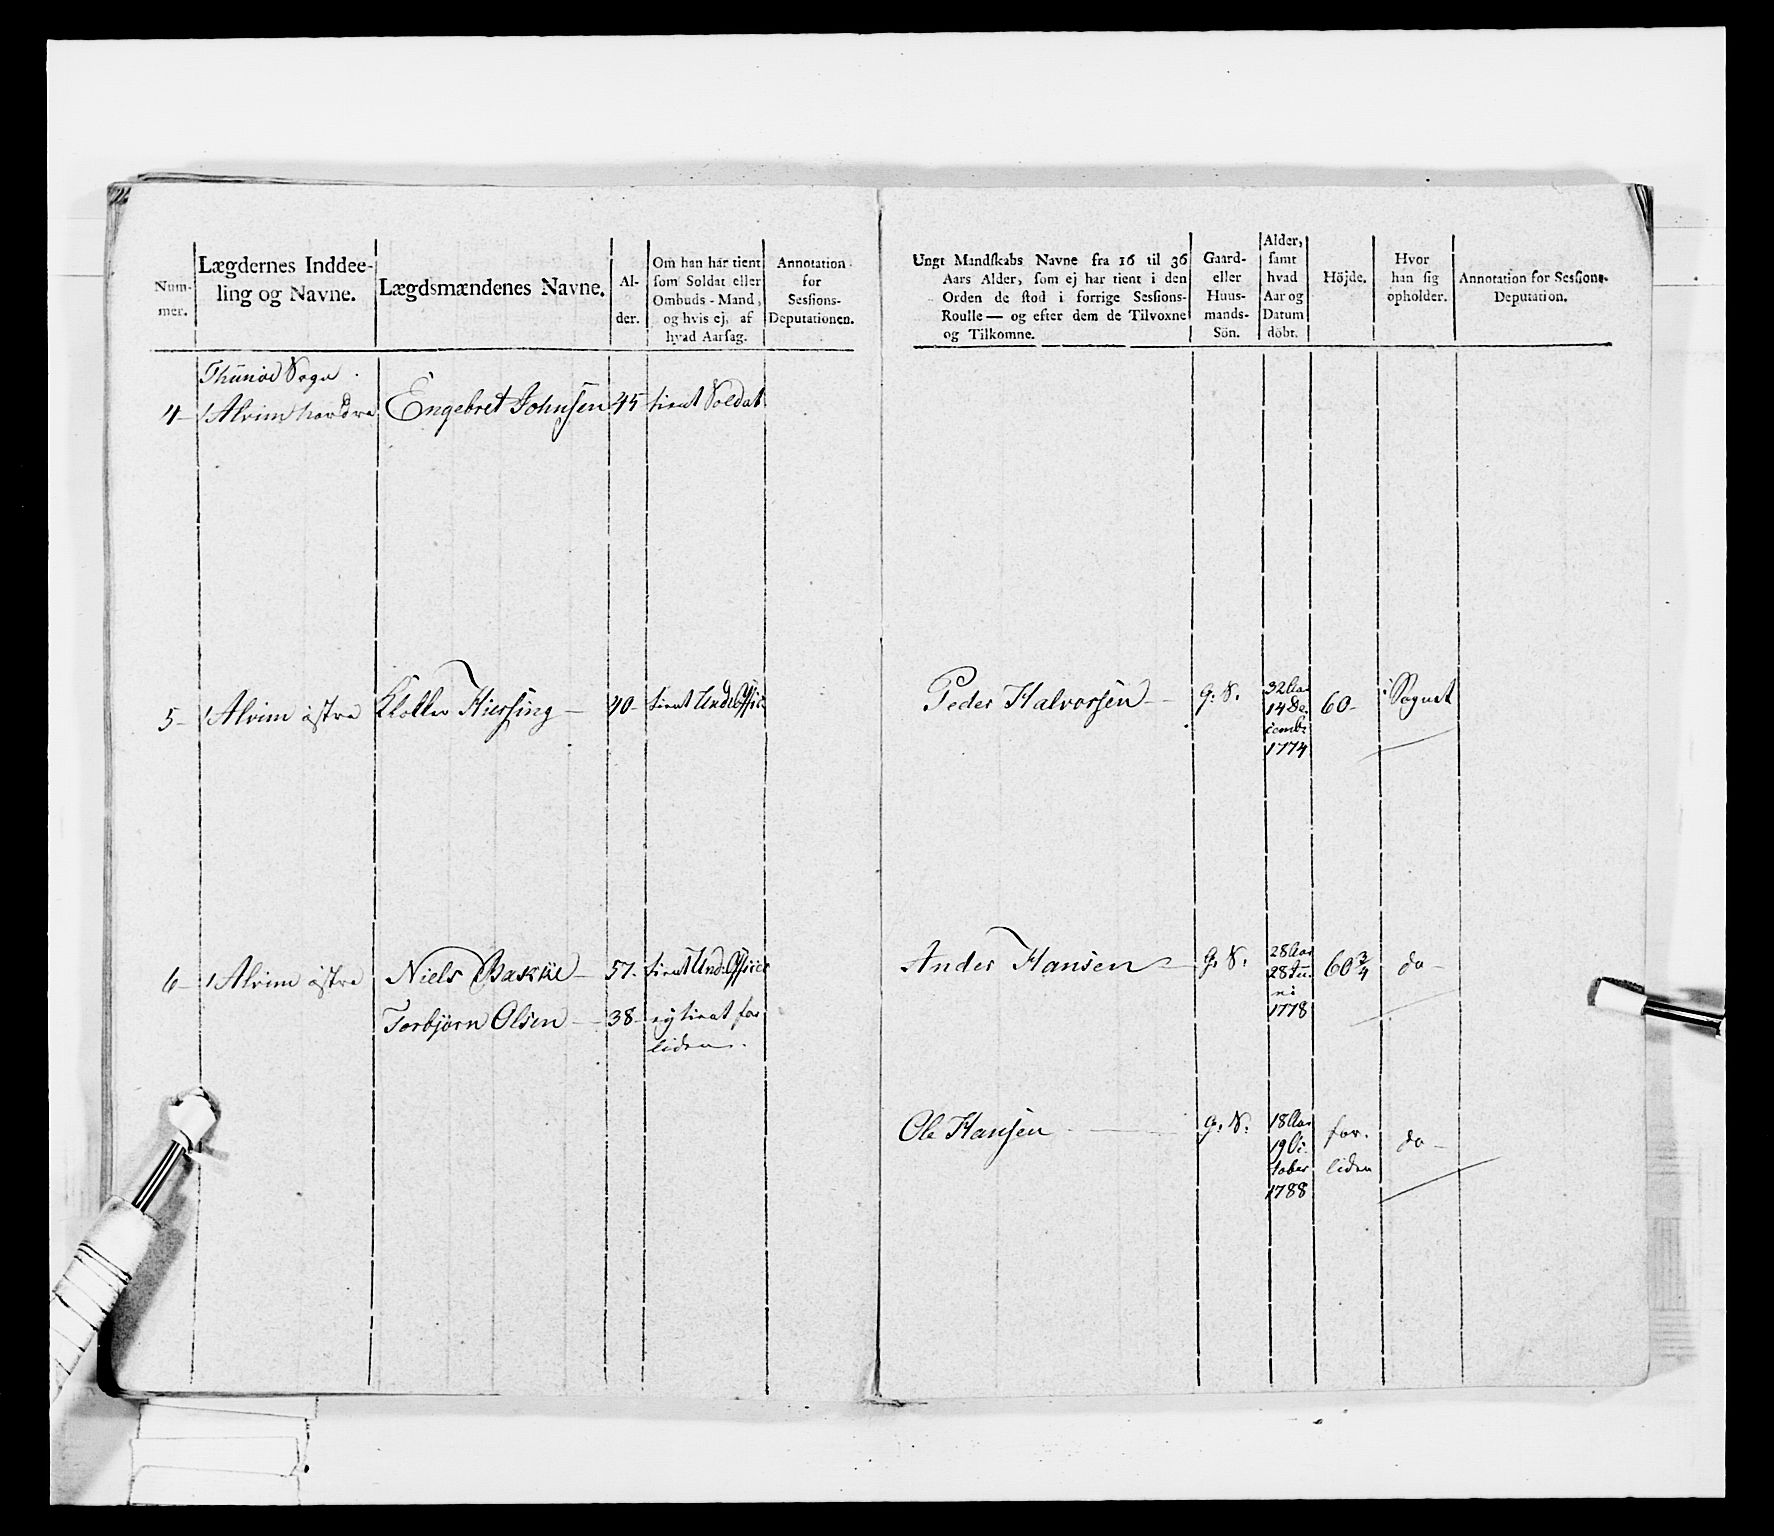 Num-
mer.
Lægdernes Inddee-
ling og Navne.
Lægdsmændenes Navne.
Al-
der.
Om han har tient
som Soldat eller
Ombuds-Mand,
og hvis ej, af
hvad Aarsag.
Annotation
for
Sessions-
Deputationen.
Ungt Mandskabs Navne fra 16 til 36
Aars Alder, som ej har tient i den
Orden de stod i forrige Sessions-
Roulle — og efter dem de Tilvoxne
og Tilkomne.
Gaard-
eller
Huus-
mands-
Sön.
Alder,
samt
hvad
Aar og
Datum
döbt.
Höjde.
Hvor
han sig
opholder.
Annotation for Sessions-
Deputation.
Thunöe Sogn
4 - 1 Alvim nordre Engebret Johnsen 45 tient Soldat
5 - 1 Alvim östre Hiersing - 40 - tient Und: Officier
Peder Halvorsen - G. S. 32 Aar 60 - i Sognet
14 De-
cembr
1774
6 - 1 Alvim östre Niels Bakke - 57 - tient Und: Officier
Torbjørn Olsen - 38 - ej tient for
liden.
Ander Hansen - G. S. 28 Aar 60 3/4 do -
28 Ju-
ni
1778
Ole Hansen - G. S. 18 Aar for- do -
19 Oc- liden
tober
1788